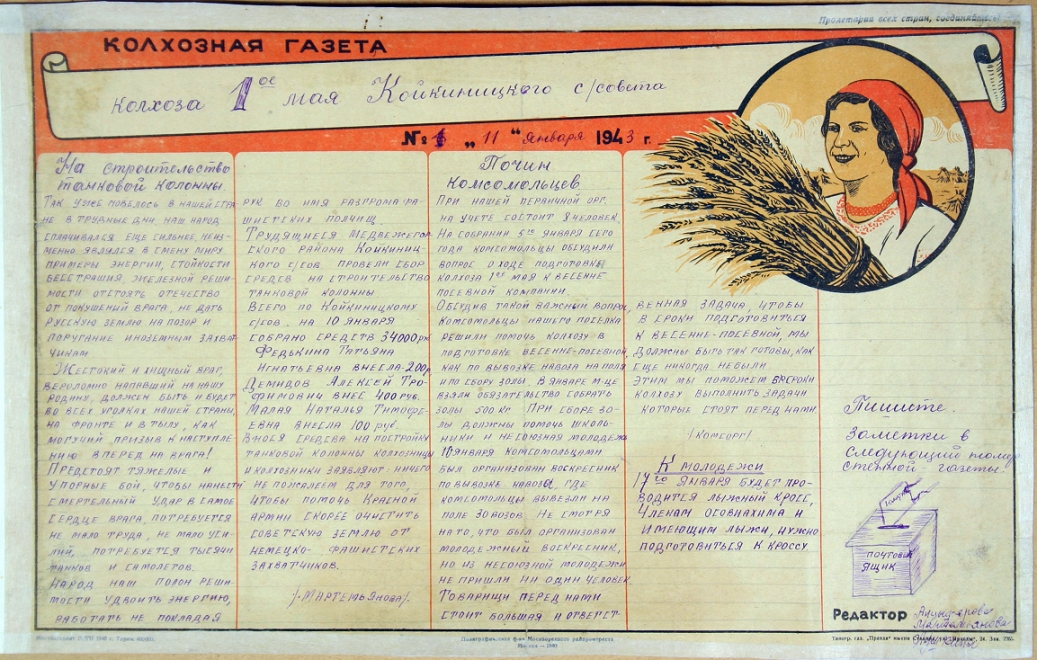 Пролетарии всех стран, соединяйтесь!
КОЛХОЗНАЯ ГАЗЕТА
колхоза 1ое мая Койкиницкого с/совета
№ 1 „11" января 1943 г.
На строительство
танковой колонны
Так уже повелось в нашей стра-
не в трудные дни, наш народ
сплачивался еще сильнее, неиз-
менно являлся в смену миру
примеры энергии, стойкости
бесстрашия, железной реши-
мости отстоять отечество
от покушений врага, не дать
русскую землю на позор и
поругание иноземным захват-
чикам
Жестокий и хищный враг,
вероломно напавший на нашу
Родину, должен быть и будет
Во всех уголках нашей страны,
на фронте и в тылу, как
могучий призыв к наступле-
нию вперед на врага!
Предстоят тяжелые и
упорные бои, чтобы нанести
смертельный удар в самое
сердце врага, потребуется
не мало труда, не мало уси-
лий, потребуется тысячи
танков и самолетов.
Народ наш полон реши-
мости удвоить энергию,
работать не покладая
рук во имя разгрома фа-
шистских полчищ
Трудящиеся Медвежегор-
ского района Койкиниц-
кого с/сов провели сбор
средств на строительство
танковой колонны
Всего по Койкиницкому
с/сов. на 10 января
собрано средств 34000 руб
Федькина Татьяна
Игнатьевна внесла-200р
Демидов Алексей Тро-
фимович внес 400 руб.
Малая Наталья Тимофе-
евна внесла 100 руб.
Внося средства на постройку
танковой колонны колхозницы
и колхозники заявляют: ничего
не пожалеем для того,
чтобы помочь Красной
армии скорее очистить
советскую землю от
немецко-фашистских
захватчиков.
/-Мартемьянова/-
Почин
комсомольцев
При нашей первичной орг.
на учете состоит 8 человек.
На собрании 5го января сего
года комсомольцы обсудили
вопрос о ходе подготовки
колхоза 1ое мая к весенне-
посевной компании.
Обсудив такой важный вопрос,
комсомольцы нашего поселка
решили помочь колхозу в
подготовке весенне-посевной,
как по вывозке навоза на поля
и по сбору золы. В январе м-це
взяли обязательство собрать
золы 500 кг. При сборе зо-
лы должны помочь школь-
ники и несоюзная молодежь
10 января комсомольцами
был организован воскресник
по вывозке навоза, где
комсомольцы вывезли на
поле 30 возов. Не смотря
на то, что был организован
молодежный воскресник,
но из несоюзной молодежи
не пришли ни один человек.
Товарищи перед нами
стоит большая и ответст-
венная задача, чтобы
в сроки подготовиться
к весенне-посевной, мы
должны быть так готовы, как
еще никогда небыли
Этим мы поможем
колхозу выполнить задачи
которые стоят перед нами
/Комсорг/
К молодежи
17го января будет про-
водится лыжный кросс,
Членам Осовиахима и
имеющим лыжи, нужно
подготовиться к кроссу
Пишите.
Заметки в
следующий номер
стенной газеты.
ПОЧТОВЫЙ
ЯЩИК
Редактор
Мартемьянова